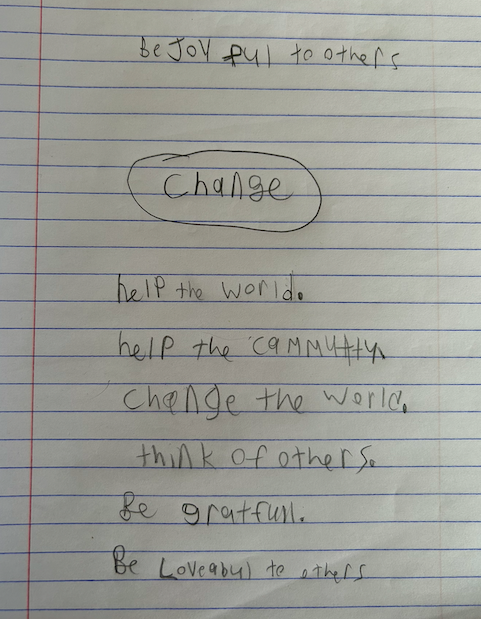 Be JOY ful to others
Change
help the world.
help the cammutty.
change the world.
think of others.
Be gratfull.
Be Loveabul to others